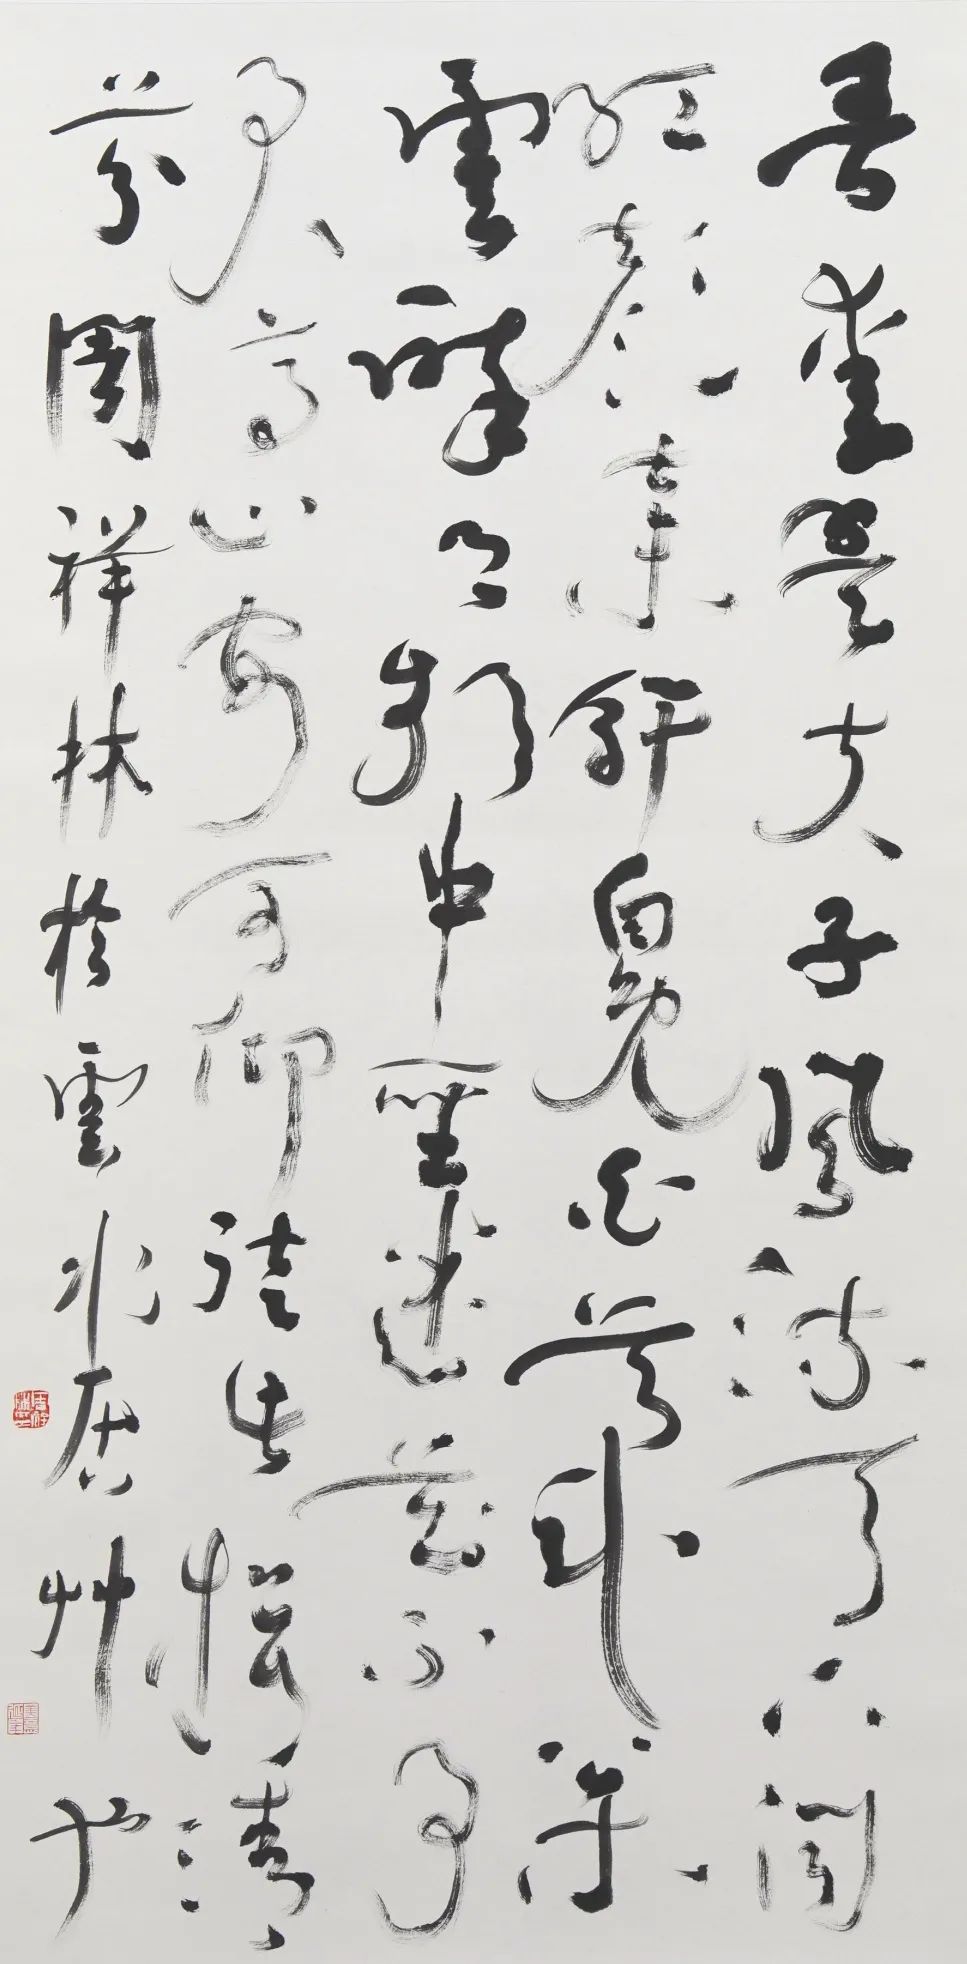 吾愛孟夫子風流天下聞
紅顏棄軒冕白首臥松
雲醉月頻中聖迷花不事
君高山安可仰徒此揖清
芬周祥林於雲水居艸也